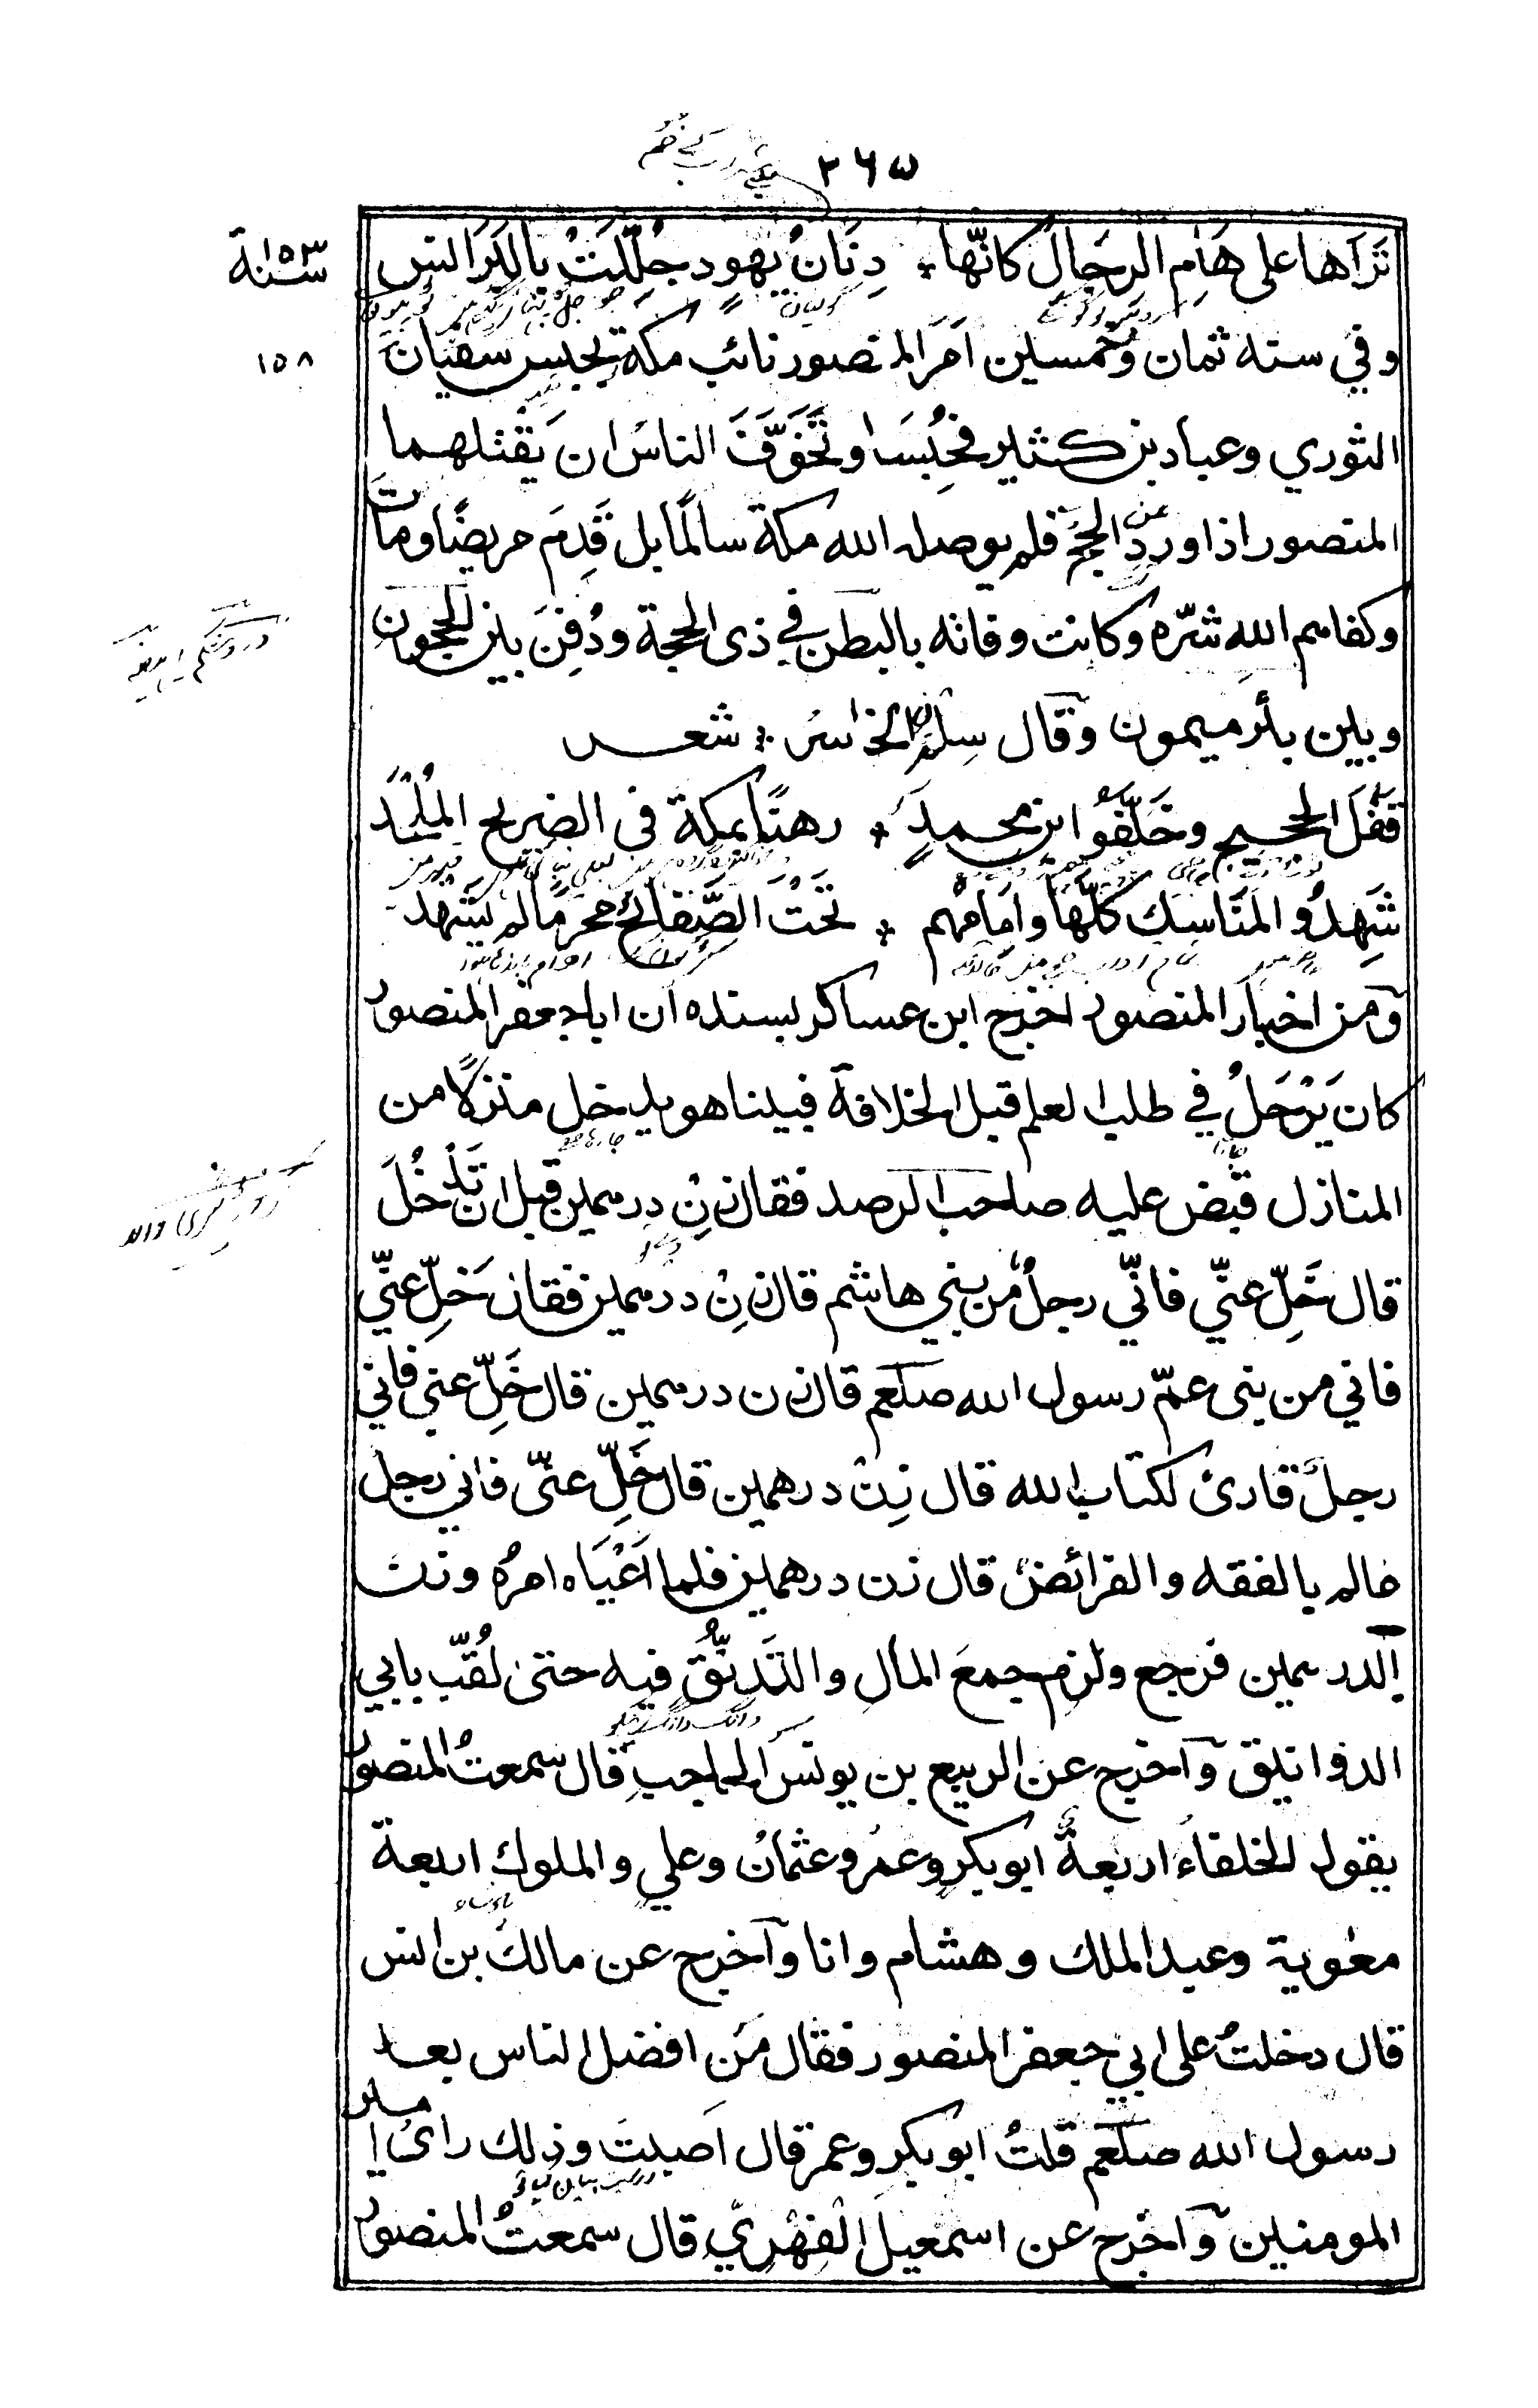 ٢٦٥
تَرَاها على هَامِ الرجَالِ كانّها * دِنَانُ يهودٍ جُلِّلَتْ بالبَرَانس
سنة ١٥٣
وفي سنه ثمان وخمسين اَمَرَ المنصور نائب مكة بحبس سفيان
١٥٨
الثوري وعباد بن كثير فحُبِسَا وتَخَوَّفَ الناسُ ان يَقتلهما
المنصور اذا ورد الحجّ فلم يوصله الله مكة سالمًا بل قَدِمَ مريضًا ومات
وكفاهم الله شرّه وكانت وفاته بالبطن في ذى الحجة ودُفِنَ بين الحجون
وبين بئر ميمون وقال سِلْم الخاسر : شعر
قَفَلَ الحجيج وخَلّفُوا ابن محمدٍ * رهنًا بمكة في الضريح المُلْحَد
شَهِدُوا المَنَاسِكَ كلَّها وامَامُهم * تَحْتَ الصَّفَائح محرمًا لم يَشْهَد
ومن اخبار المنصور اخرج ابن عساكر بسنده ان ابا جعفر المنصور
كان يَرْحَلُ في طلب العلم قبل الخلافة فبينا هو يدخل منزلًا من
المنازل قبَض عليه صاحب الرصد فقال زِنْ درهمين قبل ان تَدْخُلَ
قال خَلِّ عنّي فانّي رجلٌ من بني هاشم قال زِنْ درهمين فقال خَلِّ عنّي
فاني من بنى عمّ رسول الله صلعم قال زن درهمين قال خَلِّ عنى فاني
رجلٌ قارئ لكتاب الله قال زِنْ درهمين قال خَلِّ عنّى فاني رجل
عالم بالفقه والفرائض قال زن درهمين فلما اَعْيَاه امرُه وزن
الدرهمين فرجع ولزم جمعَ المال والتَدَنُّقَ فيه حتى لُقّب بابي
الدوانيق وآخرج عن الربيع بن يونس الحاجب قال سمعتُ المنصور
يقول الخلفاءُ اربعةٌ ابو بكر وعمر وعثمانُ وعلي والملوك اربعة
معٰوية وعبد الملك وهشام وانا وآخرج عن مالك بن انس
قال دخلتُ على ابي جعفر المنصور فقال مَن افضل الناس بعد
رسول الله صلعم قلتُ ابو بكر وعمر قال اَصبتَ وذلك رائ امير
المومنين وآخرج عن اسمعيل الفِهْريّ قال سمعتُ المنصور